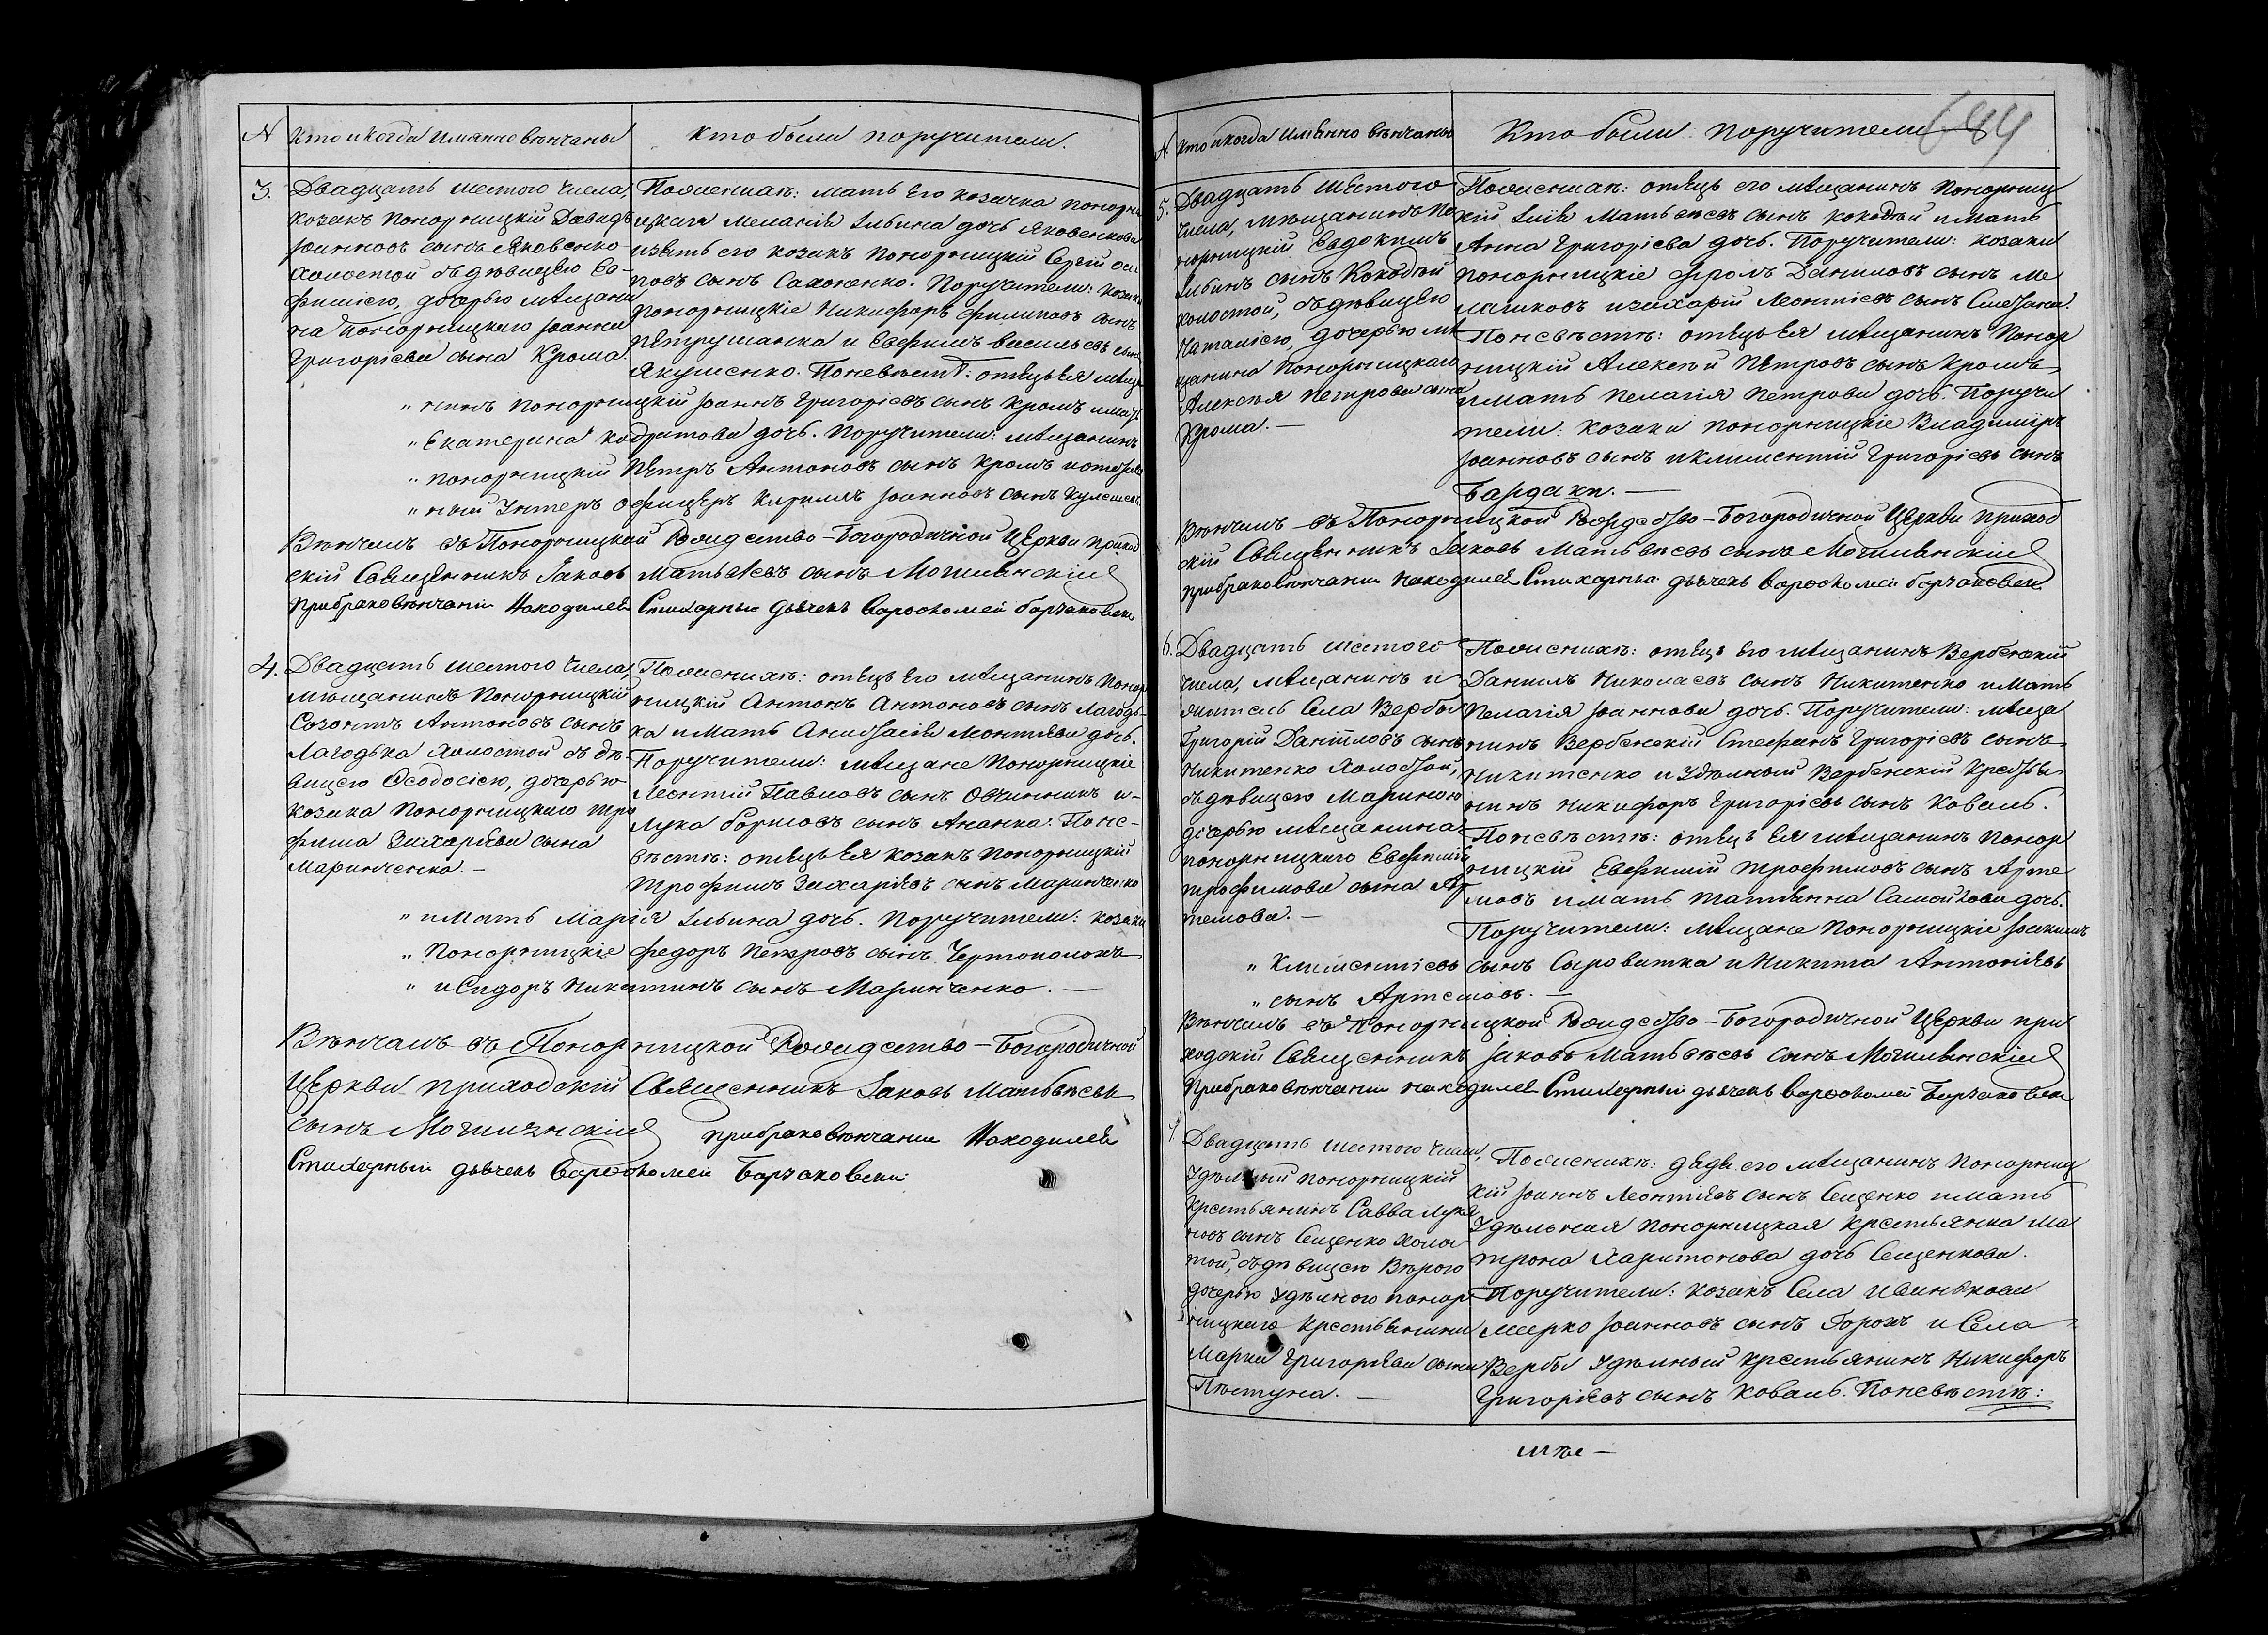 N Кто и когда имянно вѣнчаны
кто были поручители.
3. Двадцать шестого числа,
козакъ Понорницкій Давидъ
Іоанновъ сынъ Яковенко
холостой съ дѣвицею Ев-
фиміею, дочерью мѣщани
на Понорницкаго Іоанна
Григоріева сына Крома.
По женихѣ: мать его козачка Понорни
цкая Меланія Ильина дочь Яковенкова
и зять его козакъ Понорницкій Сергій оси
повъ сынъ Сахоненко. Поручители: козаки
Понорницкіе Никифоръ Филиповъ сынъ
Петрушанка и Евфимъ Васильевъ сынъ
Якушенко. По невѣстѣ: отецъ ея мѣща
„ нинъ Понорницкій Іоаннъ Григоріевъ сынъ Кромъ и мать
„ Екатерина Кодратова дочь. Поручители: мѣщанинъ
„ Понорницкій Петръ Антоновъ сынъ Кромъ и отстав
„ ный Унтеръ Офицеръ Кирилъ Іоанновъ сынъ
Вѣнчалъ въ Понорницкой Рождество-Богородичной Церкви приход
скій Священникъ Іаковъ Матвѣевъ сынъ Могилянскій
При браковѣнчаніи находился Стихарный дьячекъ Варѳоломей
4. Двадцать шестого числа,
мѣщанинъ Понорницкій
Созонтъ Антоновъ сынъ
Лагодька холостой съ дѣ-
вицею Ѳеодосіею, дочерью
козака Понорницкаго Тро
фима Захаріева сына
Маринченка. —
По женихѣ: отецъ его мѣщанинъ Понор
ницкій Антонъ Антоновъ сынъ Лагодь-
ка и мать Анастасія Леонтіева дочь.
Поручители: мѣщане Понорницкіе
Леонтій Павловъ сынъ Овчинникъ и-
Лука Борисовъ сынъ Ананка. По не-
вѣстѣ: отецъ ея козакъ Понорницкій
Трофимъ Захаріевъ сынъ Маринченко
„ и мать Марія Ильина дочь. Поручители: козаки
„ Понорницкіе Федоръ Петровъ сынъ Чертополохъ
„ и Сидоръ Никитинъ сынъ Маринченко. —
Вѣнчалъ въ Понорницкой Рождество-Богородичной
Церкви приходскій Священникъ Іаковъ Матвѣевъ
сынъ Могилянскій при браковѣнчаніи Находился
Стихарный дьячекъ Варѳоломей
N Кто и когда имянно вѣнчаны
Кто были поручители
5. Двадцать шестого
числа, мѣщанинъ По
норницкій Евдокимъ
Ильинъ сынъ Кокодѣй
холостой, съ дѣвицею
Наталіею, дочерью мѣ
щанина Понорницкаго
Алексѣя Петрова сына
Крома. —
По женихѣ: отецъ его мѣщанинъ Понорниц
кій Илія Матвѣевъ сынъ Кокодѣй и мать
Анна Григоріева дочь. Поручители: козаки
Понорницкіе Фролъ Даниловъ сынъ Ме
лаликовъ и Захарій Леонтіевъ сынъ
По невѣстѣ: отецъ ея мѣщанинъ Понор
ницкій Алексѣй Петровъ сынъ Кромъ
и мать Пелагія Петрова дочь. Поручи
тели: козаки Понорницкіе Владиміръ
Іоанновъ сынъ и Климентій Григоріевъ сынъ
Бардаки. —
Вѣнчалъ въ Понорницкой Рождество-Богородичной Церкви приход
скій Священникъ Іаковъ Матвѣевъ сынъ Могилянскій
при браковѣнчаніи находился Стихарный дьячекъ Варѳоломей
6. Двадцать шестого
числа, мѣщанинъ и
житель села Вербы
Григорій Даніиловъ сынъ
Никитенко холостой,
съ дѣвицею Мариною
дочерью мѣщанина
Понорницкаго Евфимія
Трофимова сына Ар
темова. —
По женихѣ: отецъ его мѣщанинъ Вербенскій
Данилъ Николаевъ сынъ Никитенко и мать
Пелагія Іоаннова дочь. Поручители: мѣща
нинъ Вербенскій Стефанъ Григоріевъ сынъ
Никитенко и удѣлный Вербенскій крестья
нинъ Никифоръ Григоріевъ сынъ Коваль.
По невѣстѣ: отецъ ея мѣщанинъ Понор
ницкій Евфимій Трофимовъ сынъ Арте
мовъ и мать Татіанна Самойлова дочь.
Поручители: мѣщане Понорницкіе Іоакимъ
„ Климентіевъ сынъ Сыроватка и Никита Антоніевъ
„ сынъ Артемовъ. —
Вѣнчалъ въ Понорницкой Рождество-Богородичной Церкви при
ходскій Священникъ Іаковъ Матвѣевъ сынъ Могилянскій
При браковѣнчаніи находился Стихарный дьячекъ Варѳоломей
7. Двадцать шестого числа,
удѣлный Понорницкій
крестьянинъ Савва Лукя
новъ сынъ Сещенко холос
той, съ дѣвицею Вѣрою
дочерью удѣлного Понор
ницкаго крестьянина
Марка Григоріева сына
Пѣтуна. —
По женихѣ: дѣдъ его мѣщанинъ Понорниц
кій Іоаннъ Леонтіевъ сынъ Сещенко и мать
удѣльная Понорницкая крестьянка Ма
трона Харитонова дочь Сещенкова.
Поручители: козакъ села
Марко Іоанновъ сынъ Горохъ и села
Вербы удѣлный крестьянинъ Никифоръ
Григоріевъ сынъ Коваль. По невѣстѣ: